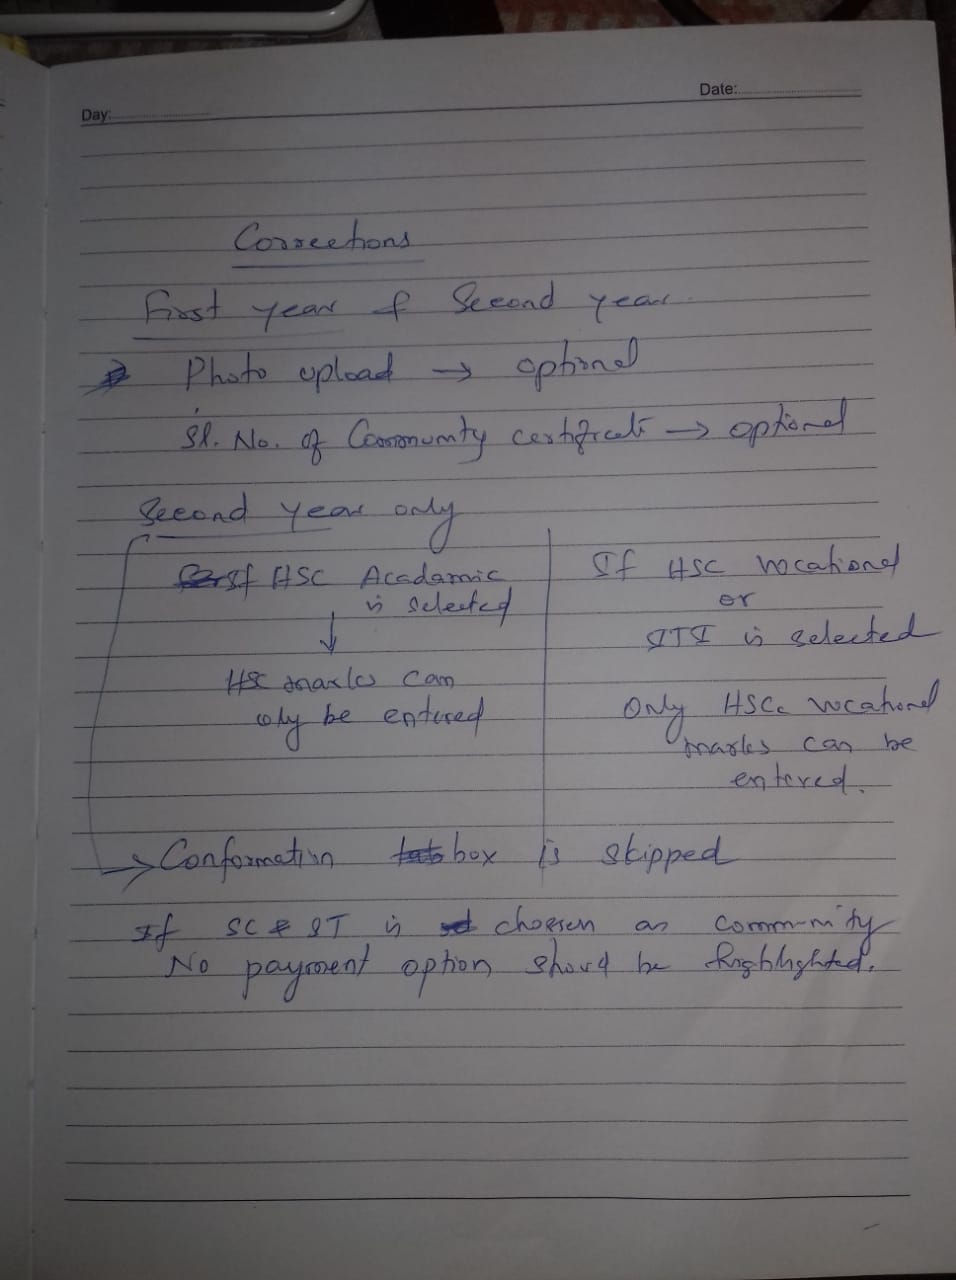 Day:
Date:
Corrections
First year & Second year
Photo upload → optional
Sl. No. of Community certificate → optional
Second year only
If HSC Acadamic
is selected
↓
HSC marks can
only be entered
If HSC Vocational
or
ITI is selected
Only HSC vocational
marks can be
entered.
→ Conformation box is skipped
If SC & ST is choosen as community
No payment option should be highlighted.